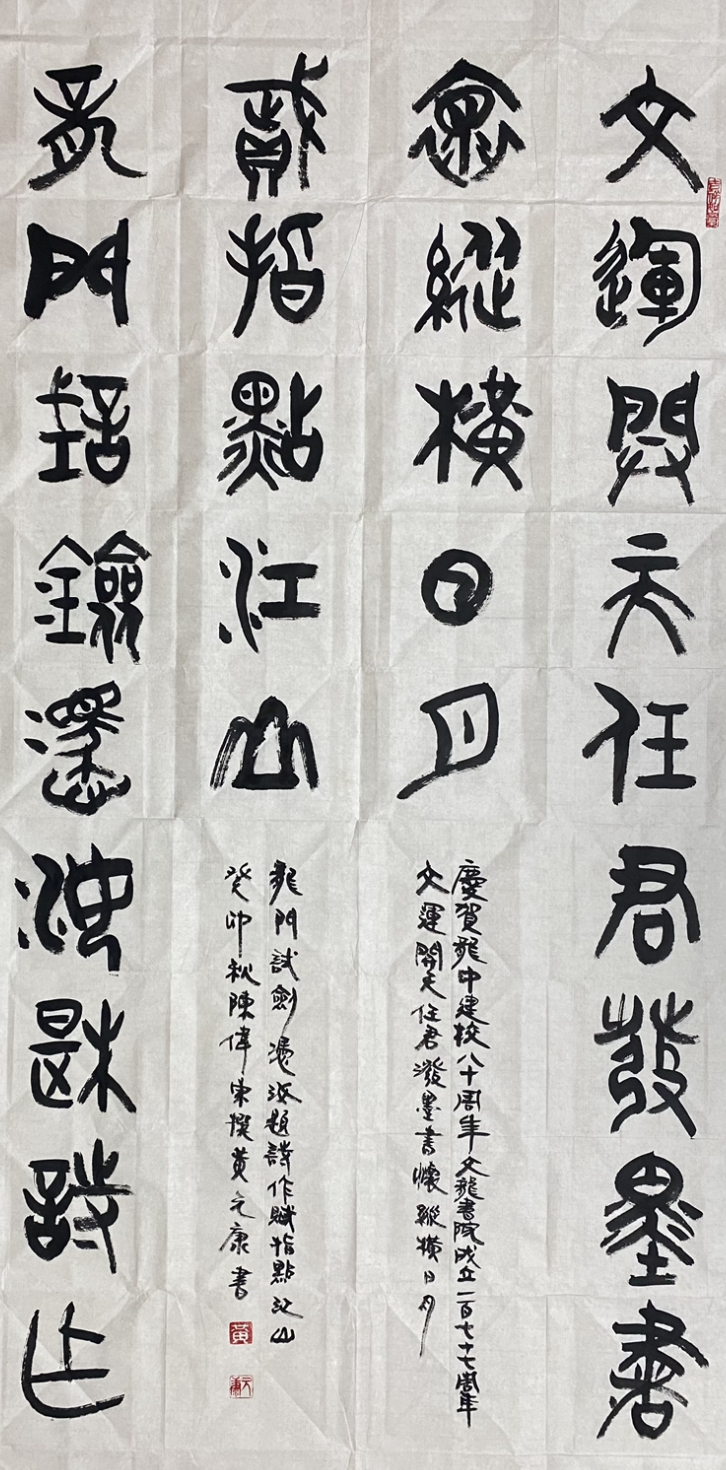 文運開天任君發墨書
懷縱橫日月
龍門試劍憑汝題詩作
賦指點江山
慶賀龍中建校八十周年文龍書院成立一百七十七周年
文運開天任君潑墨書懷縱橫日月
龍門試劍憑汝題詩作賦指點江山
癸卯秋陳偉東撰黃元康書
黃